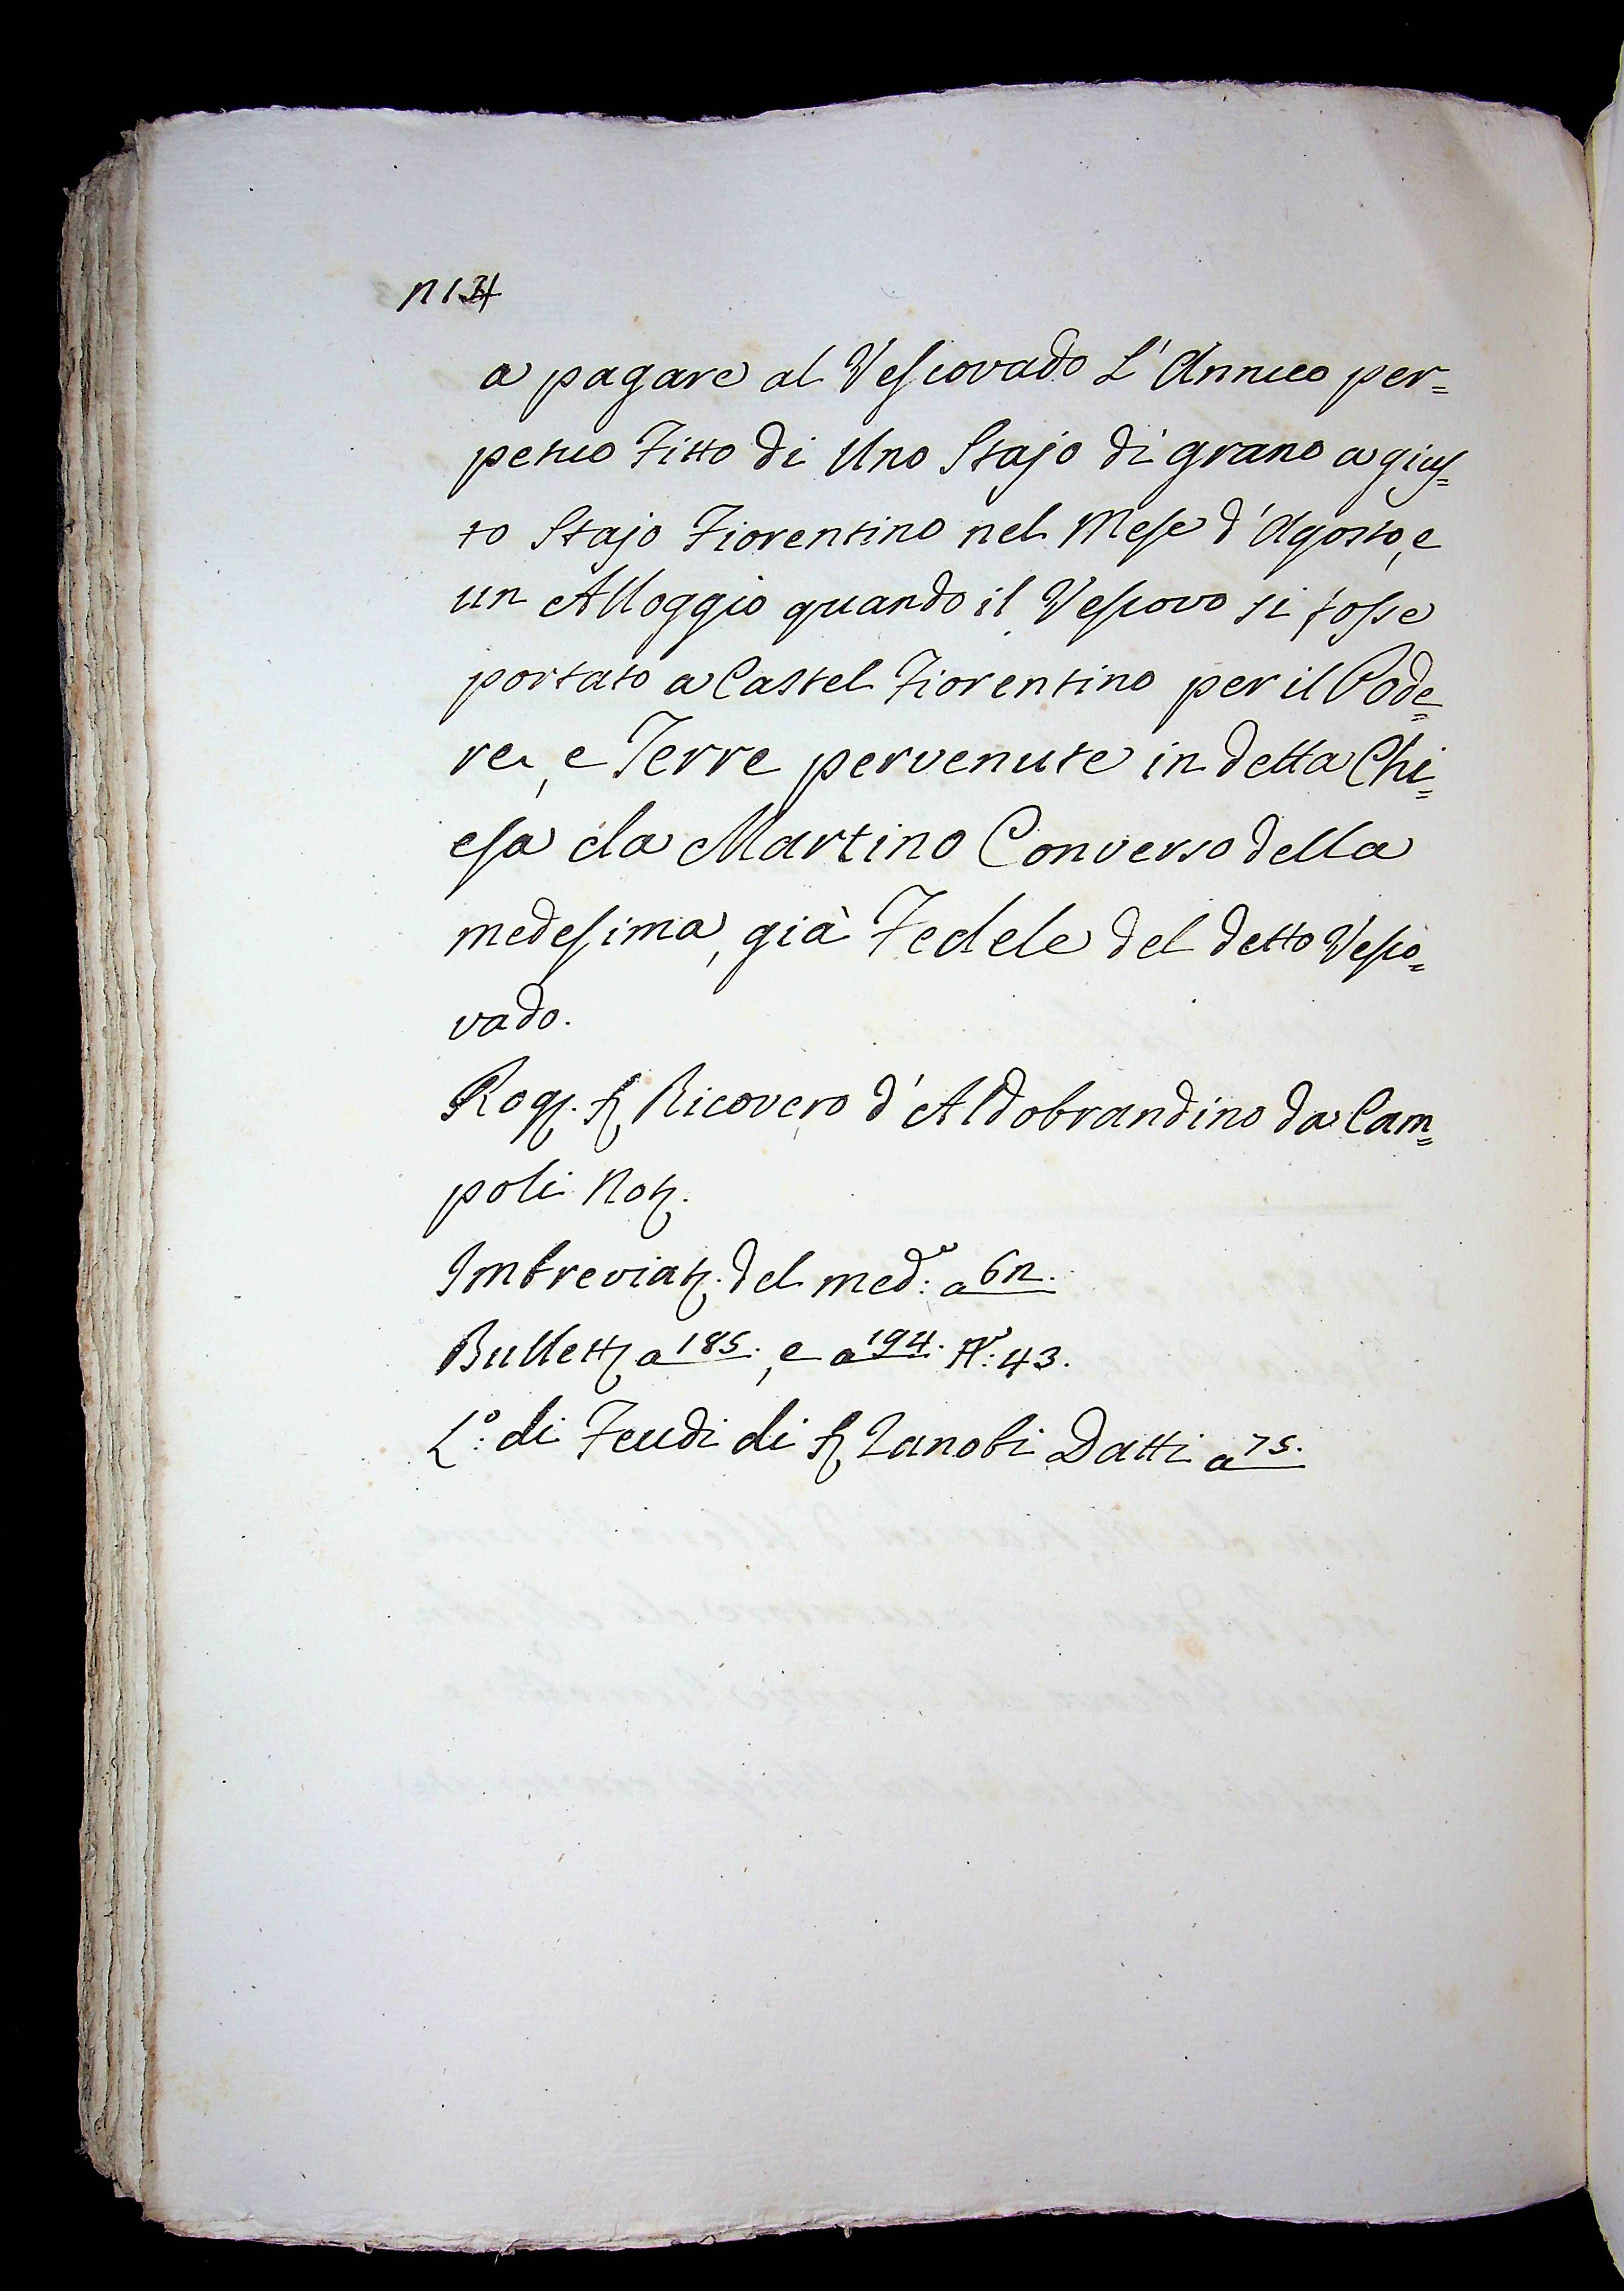 a pagare al Vescovado L'Annuo per=
petuo Fitto di Uno Stajo di grano a gius=
to Stajo Fiorentino nel Mese d'Agosto, e
un Alloggio quando il Vescovo si fosse
portato a Castel Fiorentino per il Pode=
re, e Terre pervenute in detta Chi=
esa da Martino Converso della
medesima, già Fedele del detto Vesco=
vado.
Rog. Ricovero d'Aldobrandino da Cam=
poli Not.
Imbreviat. del med.o a 62.
Bullett. a 185., e a 194. N.o: 43.
L.o: di Feudi di Zanobi Datti a 75.